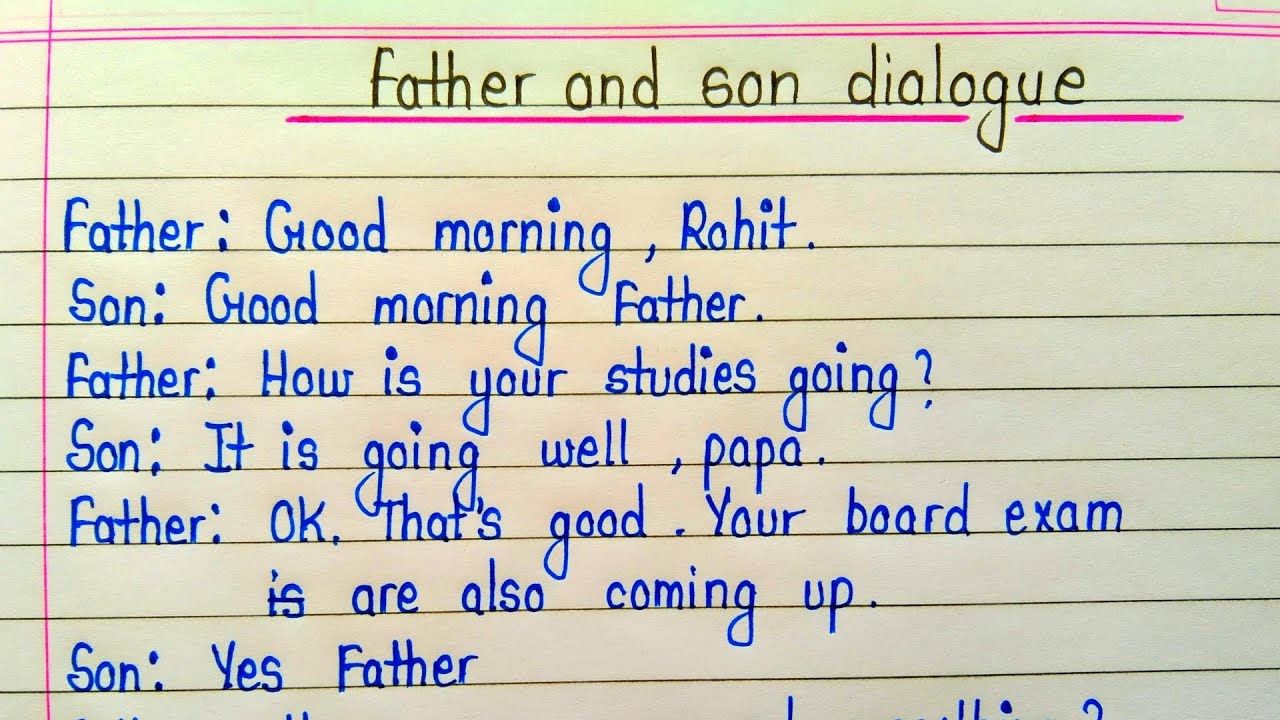 Father and son dialogue
Father: Good morning, Rohit.
Son: Good morning Father.
Father: How is your studies going?
Son: It is going well, papa.
Father: OK. That's good. Your board exam
is are also coming up.
Son: Yes Father